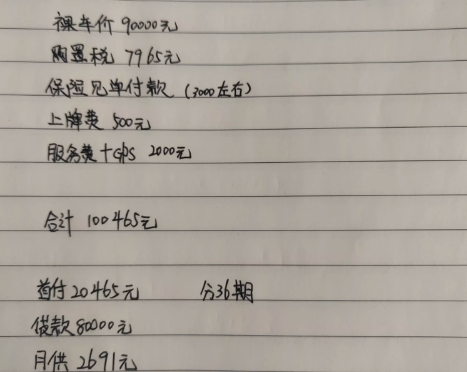 裸车价 90000元
购置税 7965元
保险见单付款 (3000左右)
上牌费 500元
服务费+GPS 2000元
合计 100465元
首付20465元 分36期
贷款80000元
月供 2691元